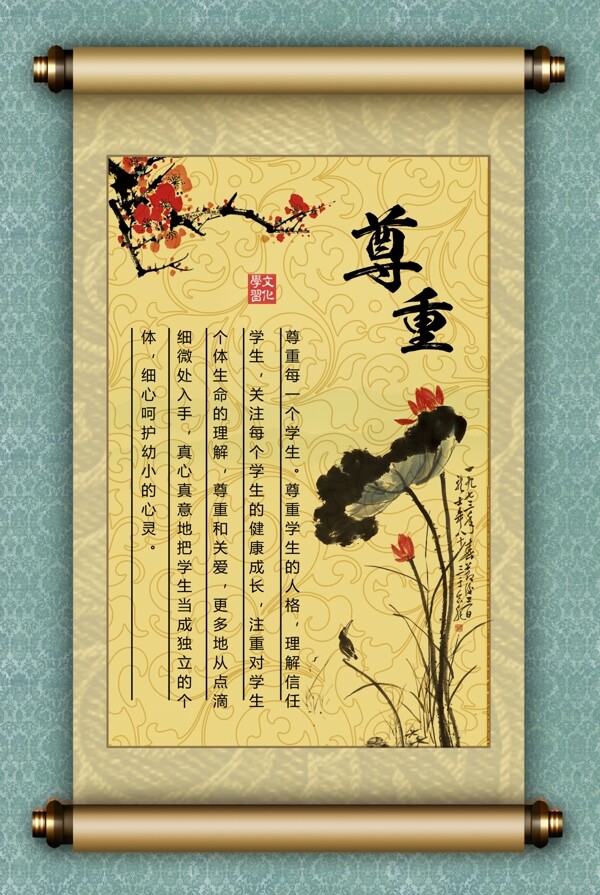 尊重
尊重每一个学生。尊重学生的人格，理解信任
学生，关注每个学生的健康成长，注重对学生
个体生命的理解，尊重和关爱，更多地从点滴
细微处入手，真心真意地把学生当成独立的个
体，细心呵护幼小的心灵。
文化
學習